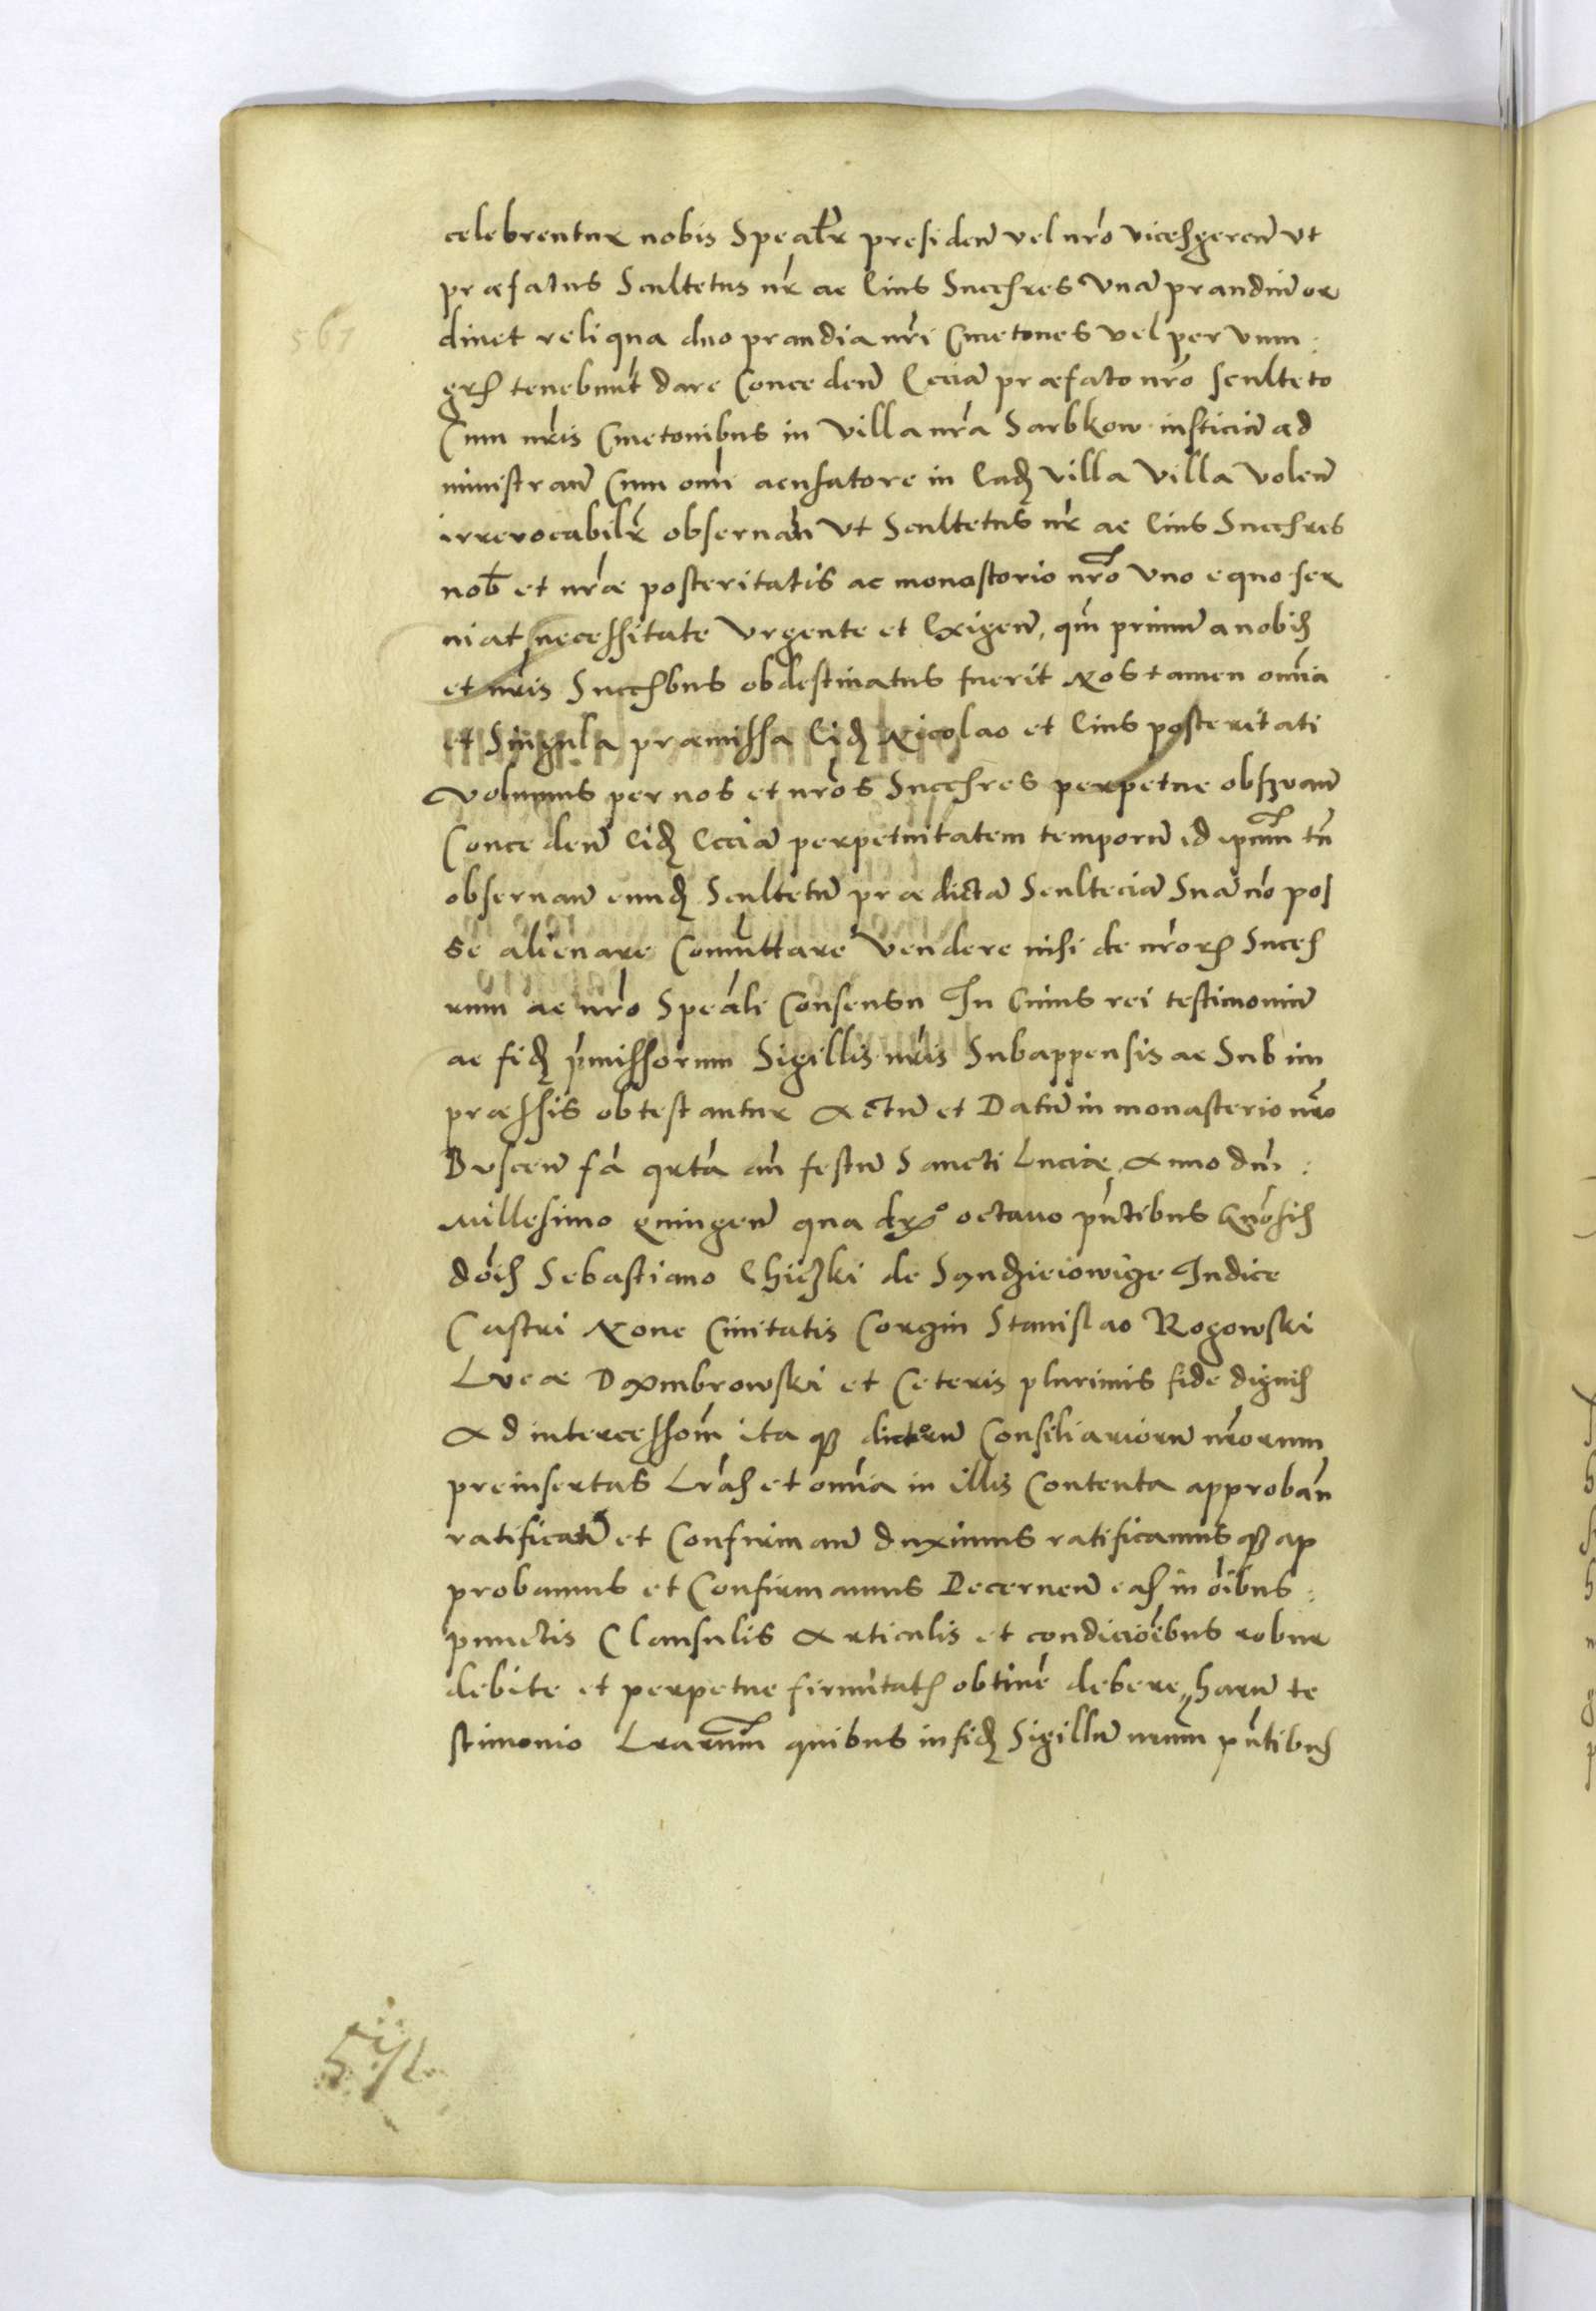 celebrentur nobis Spealr̃ presiden̄ vel nr̃o vicesgeren̄ vt
præfatus Scultetus nr̃ ac Eius Succesres Vnā prandiū or
dinet reliqua duo prandia nr̃i Cmetones vel per vnum :
grs tenebunt dare Conceden̄ Ecciā præfato nr̃o sculteto
Cum nr̃is Cmetonibus in Villa nr̃a Sarbkow iusticiā ad
ministran̄ Cum om̄i acusatore in Eadz villa Villa volen̄
irrevocabilr̃ obseruan̄ Vt Scultetus nr̃ ac Eius Succesres
nob̃ et nr̃æ posteritatis ac monastorio nr̃o Vno equo ser
uiat necessitate Vrgente et Exigen̄, qm̄ primum a nobis
et nr̃is Succesbus obdestinatus fuerit Nos tamen om̄ia
et Singula præmissa Eidz Nicolao et Eius posteritati
Volumus per nos et nr̃os Succesres perpetue obseruan̄
Conceden̄ Eidz Ecciā perpetuitatem temporū id ipsum tn̄
obseruan̄ eundz Scultetū prædictā Sculteciā Suā nō pos
se alienare Comuttare Vendere nisi de nr̃ors Succes
rum ac nr̃o Speāli Consensu In Cuius rei testimoniū
ac fidz p̄missorum Sigillis nr̃is Subappensis ac Sub im
præssis obtestantur Actū et Datū in monasterio nr̃o
Buscen̄ fā qr̃ta an̄ festū Sancti Luciæ Anno dn̄i :
Millesimo quingen̄ quadrgº octauo pn̄tibus Gnōsis
dōis Sebastiano Chiczki de Sąndzieiowicze Iudice
Castri None Ciuitatis Corgin Stanislao Rogowski
Lucæ Dąmbrowski et Ceteris plurimis fide dignis
Ad intercessom̄ itaqz dictorū Consiliariorū nr̃orum
preinsertas Lr̃as et om̄ia in illis Contenta approban̄
ratifican̄ et Confirman̄ duximus ratificamusqz ap
probamus et Confirmamus Decernen̄ eas in oībus :
punctis Clausulis Articulis et condicioībus robur
debite et perpetue firmitats obtinē debere harū te
stimonio Lr̃arum quibus in fidz Sigillū nr̃um pn̄tibus